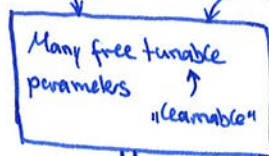 Many free tunable
parameters
„learnable"